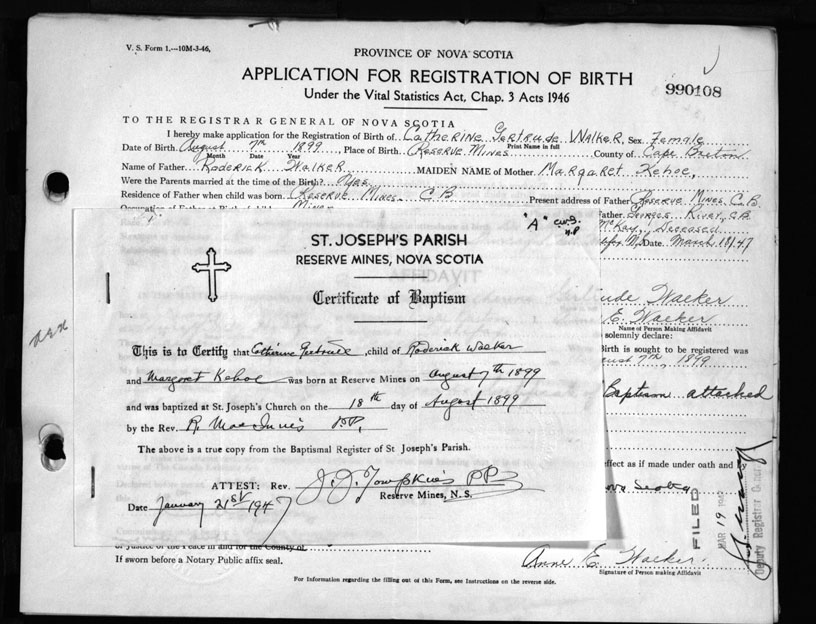 V. S. Form 1.---10M-3-46,
PROVINCE OF NOVA SCOTIA
APPLICATION FOR REGISTRATION OF BIRTH
990108
Under the Vital Statistics Act, Chap. 3 Acts 1946
TO THE REGISTRAR GENERAL OF NOVA SCOTIA
I hereby make application for the Registration of Birth of Catherine Gertrude Walker, Sex Female
Print Name in full
Date of Birth August 7th 1899 Place of Birth Reserve Mines County of Cape Breton
Month Date Year
Name of Father Roderick Walker MAIDEN NAME of Mother Margaret Kehoe,
Were the Parents married at the time of the Birth? Yes
Residence of Father when child was born Reserve Mines C B Present address of Father Reserve Mines C.B.
Father, Georges River, C.B.
McKay, Deceased
Date March 18/47
"A"
ST. JOSEPH'S PARISH
RESERVE MINES, NOVA SCOTIA
AFFIDAVIT
Certificate of Baptism
Gertrude Walker
E. Walker
Name of Person Making Affidavit
solemnly declare:
This is to Certify that Catherine Gertrude, child of Roderick Walker
Birth is sought to be registered was
and Margaret Kehoe was born at Reserve Mines on August 7th 1899
August 7th, 1899
Baptism attached
and was baptized at St. Joseph's Church on the 18th day of August 1899
by the Rev. R. MacInnis P.P.
The above is a true copy from the Baptismal Register of St Joseph's Parish.
effect as if made under oath and by
ATTEST: Rev. J. J. Tompkins PP
Reserve Mines, N. S.
Nova Scotia
Date January 21st 1947
FILED
MAR 19 1947
Deputy Registrar General
of Justice of the Peace in and for the County of
If sworn before a Notary Public affix seal.
Anne E. Walker.
Signature of Person making Affidavit
For Information regarding the filling out of this Form, see Instructions on the reverse side.